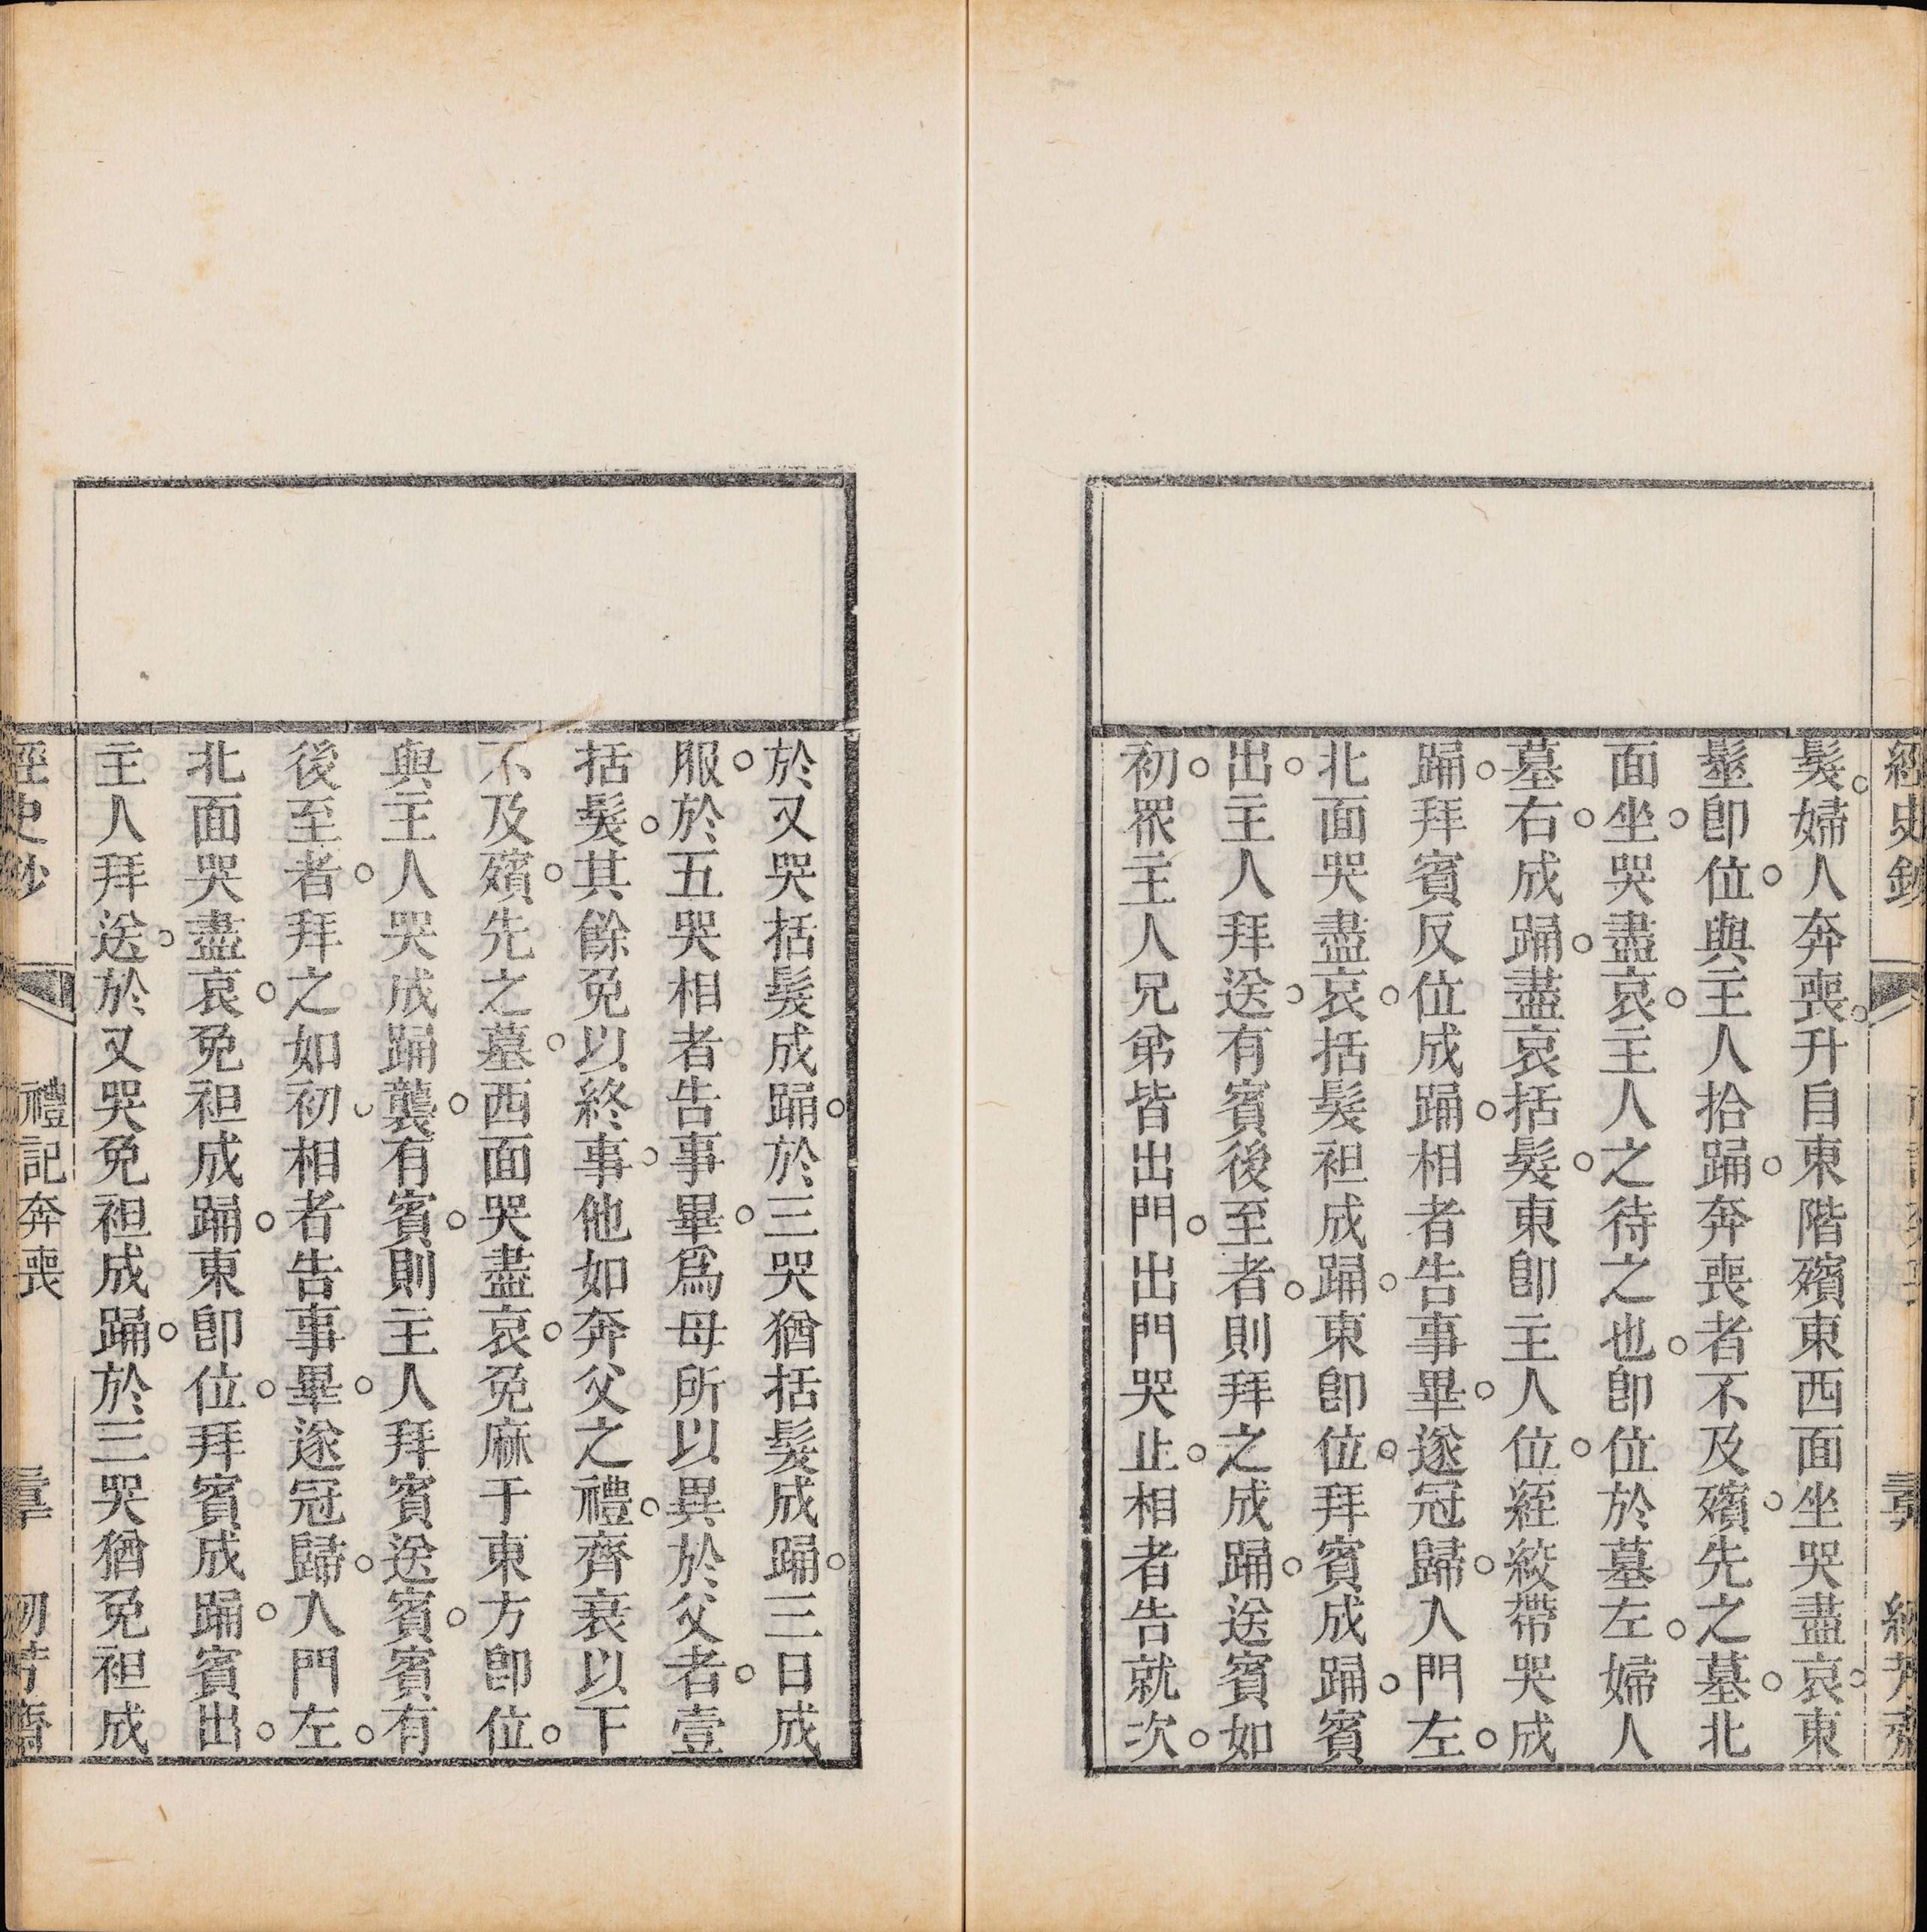 髮。婦人奔喪。升自東階殯東西面坐哭盡哀。東
髽卽位。與主人拾踊。奔喪者不及殯。先之墓。北
面坐。哭盡哀。主人之待之也。卽位於墓左。婦人
墓右。成踊。盡哀括髮。東卽主人位。絰絞帶哭成
踊。拜賓反位成踊。相者告事畢。遂冠歸。入門左。
北面哭盡哀。括髮袒成踊。東卽位。拜賓成踊。賓
出。主人拜送。有賓後至者。則拜之成踊。送賓如
初。眾主人兄弟皆出門。出門哭止。相者告就次。
於又哭括髮成踊。於三哭猶括髮成踊。三日成
服。於五哭相者告事畢。爲母所以異於父者。壹
括髮。其餘免以終事。他如奔父之禮。齊衰以下
不及殯。先之墓。西面哭盡哀。免麻于東方卽位。
與主人哭成踊襲。有賓。則主人拜賓送賓。賓有
後至者。拜之如初。相者告事畢。遂冠歸。入門左。
北面哭盡哀。免袒成踊。東卽位。拜賓成踊。賓出。
主人拜送。於又哭免袒成踊。於三哭猶免袒成
經史鈔 禮記奔喪